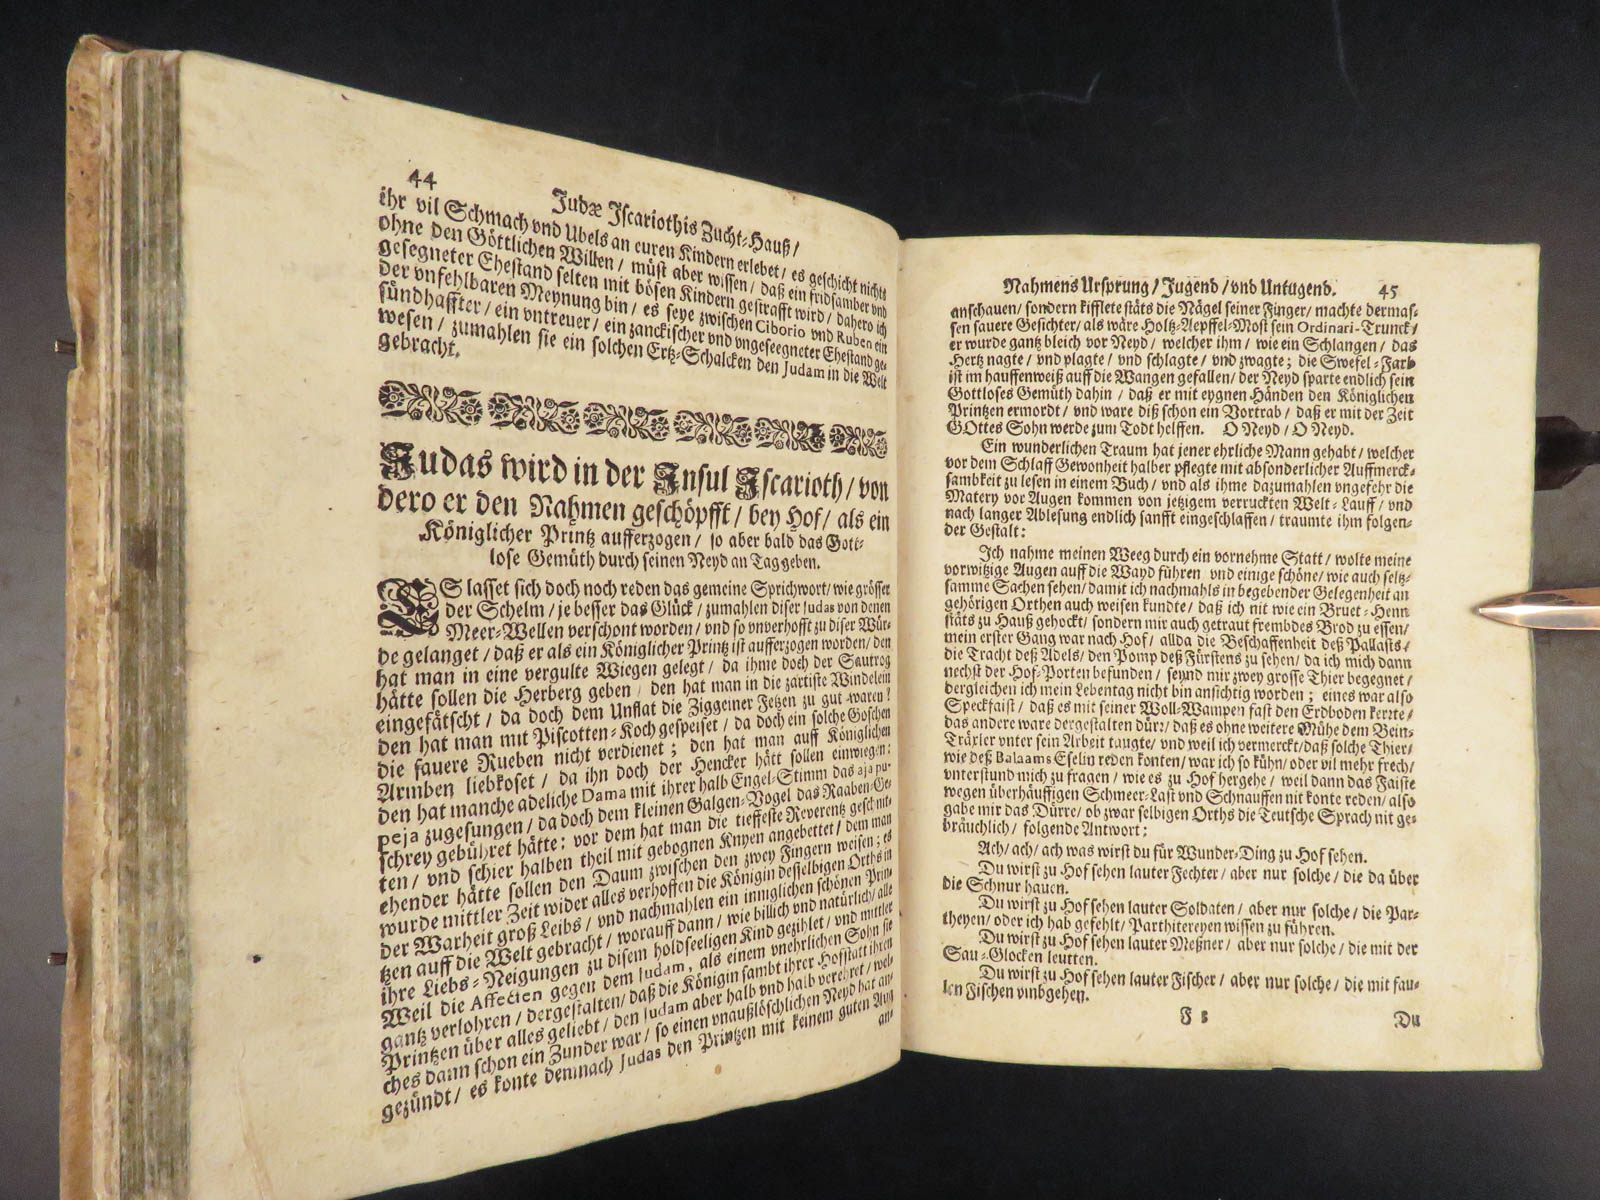 44
Judæ Iscariothis Zucht-Hauß/
ihr vil Schmach vnd Ubels an euren Kindern erlebet/ es geschicht nichts
ohne den Göttlichen Willen/ müst aber wissen/ daß ein fridsamber vnd
gesegneter Ehestand selten mit bösen Kindern gestrafft wird/ dahero ich
der vnfehlbaren Meynung bin/ es seye zwischen Ciborio vnd Ruben ein
sündhaffter/ ein vntreuer/ ein zanckischer vnd vngeseegneter Ehestand ge-
wesen/ zumahlen sie ein solchen Ertz-Schalcken den Judam in die Welt
gebracht.
Judas wird in der Insul Iscarioth/ von
dero er den Nahmen geschöpfft/ bey Hof/ als ein
Königlicher Printz aufferzogen/ so aber bald das Gott-
lose Gemüth durch seinen Neyd an Tag geben.
ES lasset sich doch noch reden das gemeine Sprichwort/ wie grösser
der Schelm/ je besser das Glück/ zumahlen diser Judas von denen
Meer-Wellen verschont worden/ vnd so vnverhofft zu diser Wür-
de gelanget/ daß er als ein Königlicher Printz ist aufferzogen worden/ den
hat man in eine vergulte Wiegen gelegt/ da ihme doch der Sautrog
hätte sollen die Herberg geben/ den hat man in die zartiste Windelein
eingefätscht/ da doch dem Unflat die Ziggeiner Fetzen zu gut waren?
den hat man mit Piscotten-Koch gespeiset/ da doch ein solche Goschen
die fauere Rueben nicht verdienet; den hat man auff Königlichen
Armben liebkoset/ da ihn doch der Hencker hätt sollen einwiegen:
den hat manche adeliche Dama mit ihrer halb Engel-Stimm das aja pu-
peja zugesungen/ da doch dem kleinen Galgen-Vogel das Raaben-Ge-
schrey gebühret hätte: vor dem hat man die tieffeste Reverentz geschnit-
ten/ vnd schier halben theil mit gebognen Knyen angebettet/ dem man
ehender hätte sollen den Daum zwischen den zwey Fingern weisen; es
wurde mittler Zeit wider alles verhoffen die Königin desselbigen Orths in
der Warheit groß Leibs/ vnd nachmahlen ein inniglichen schönen Prin-
tzen auff die Welt gebracht/ worauff dann/ wie billich vnd natürlich/ alle
ihre Liebs-Neigungen zu disem holdseeligen Kind gezihlet/ vnd mittler
Weil die Affecten gegen dem Judam, als einem vnehrlichen Sohn sie
gantz verlohren/ dergestalten/ daß die Königin sambt ihrer Hofstatt ihren
Printzen über alles geliebt/ den Judam aber halb vnd halb verehret/ wel-
ches dann schon ein Zunder war/ so einen vnaußlöschlichen Neyd hat an-
gezündt/ es konte demnach Judas den Printzen mit keinem guten Aug
an-
Nahmens Ursprung/ Jugend/ vnd Untugend. 45
anschauen/ sondern kifflete stäts die Nägel seiner Finger/ machte dermas-
sen sauere Gesichter/ als wäre Holtz-Aepffel-Most sein Ordinari-Trunck/
er wurde gantz bleich vor Neyd/ welcher ihm/ wie ein Schlangen/ das
Hertz nagte/ vnd plagte/ vnd schlagte/ vnd zwagte; die Swefel-Farb
ist im hauffenweiß auff die Wangen gefallen/ der Neyd sparte endlich sein
Gottloses Gemüth dahin/ daß er mit eygnen Händen den Königlichen
Printzen ermordt/ vnd ware diß schon ein Vortrab/ daß er mit der Zeit
GOttes Sohn werde zum Todt helffen. O Neyd/ O Neyd.
Ein wunderlichen Traum hat jener ehrliche Mann gehabt/ welcher
vor dem Schlaff Gewonheit halber pflegte mit absonderlicher Auffmerck-
sambkeit zu lesen in einem Buch/ vnd als ihme dazumahlen vngefehr die
Matery vor Augen kommen von jetzigem verruckten Welt-Lauff/ vnd
nach langer Ablesung endlich sanfft eingeschlaffen/ traumte ihm folgen-
der Gestalt:
Ich nahme meinen Weeg durch ein vornehme Statt/ wolte meine
vorwitzige Augen auff die Wayd führen vnd einige schöne/ wie auch seltz-
samme Sachen sehen/ damit ich nachmahls in begebender Gelegenheit an
gehörigen Orthen auch weisen kundte/ daß ich nit wie ein Bruet-Henn
stäts zu Hauß gehockt/ sondern mir auch getraut frembdes Brod zu essen/
mein erster Gang war nach Hof/ allda die Beschaffenheit deß Pallasts/
die Tracht deß Adels/ den Pomp deß Fürstens zu sehen/ da ich mich dann
nechst der Hof-Porten befunden/ seynd mir zwey grosse Thier begegnet/
dergleichen ich mein Lebentag nicht bin ansichtig worden; eines war also
Speckfaist/ daß es mit seiner Woll-Wampen fast den Erdboden kerzte/
das andere ware dergestalten dürr/ daß es ohne weitere Mühe dem Bein-
Träxler vnter sein Arbeit taugte/ vnd weil ich vermerckt/ daß solche Thier/
wie deß Balaams Eselin reden konten/ war ich so kühn/ oder vil mehr frech/
vnterstund mich zu fragen/ wie es zu Hof hergehe/ weil dann das Faiste
wegen überhäuffigen Schmeer-Last vnd Schnauffen nit konte reden/ also
gabe mir das Dürre/ ob zwar selbigen Orths die Teutsche Sprach nit ge-
bräuchlich/ folgende Antwort;
Ach/ ach/ ach was wirst du für Wunder-Ding zu Hof sehen.
Du wirst zu Hof sehen lauter Fechter/ aber nur solche/ die da über
die Schnur hauen.
Du wirst zu Hof sehen lauter Soldaten/ aber nur solche/ die Par-
theyen/ oder ich hab gefehlt/ Parthitereyen wissen zu führen.
Du wirst zu Hof sehen lauter Meßner/ aber nur solche/ die mit der
Sau-Glocken leutten.
Du wirst zu Hof sehen lauter Fischer/ aber nur solche/ die mit fau-
len Fischen vmbgehen.
F 3
Du